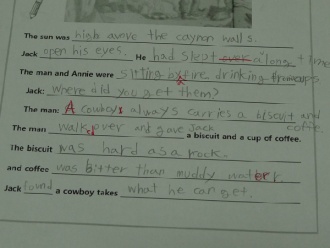 The sun was high above the caynon walls.
Jack open his eyes. He had slept over a long time
The man and Annie were sitting a fire drinking from cups
Jack: Where did you get them?
The man: A cowboy always carries a biscuit and coffe.
The man walk over and gave Jack a biscuit and a cup of coffee.
The biscuit was hard as a rock.
and coffee was bitter than muddy water
Jack found a cowboy takes what he can get.